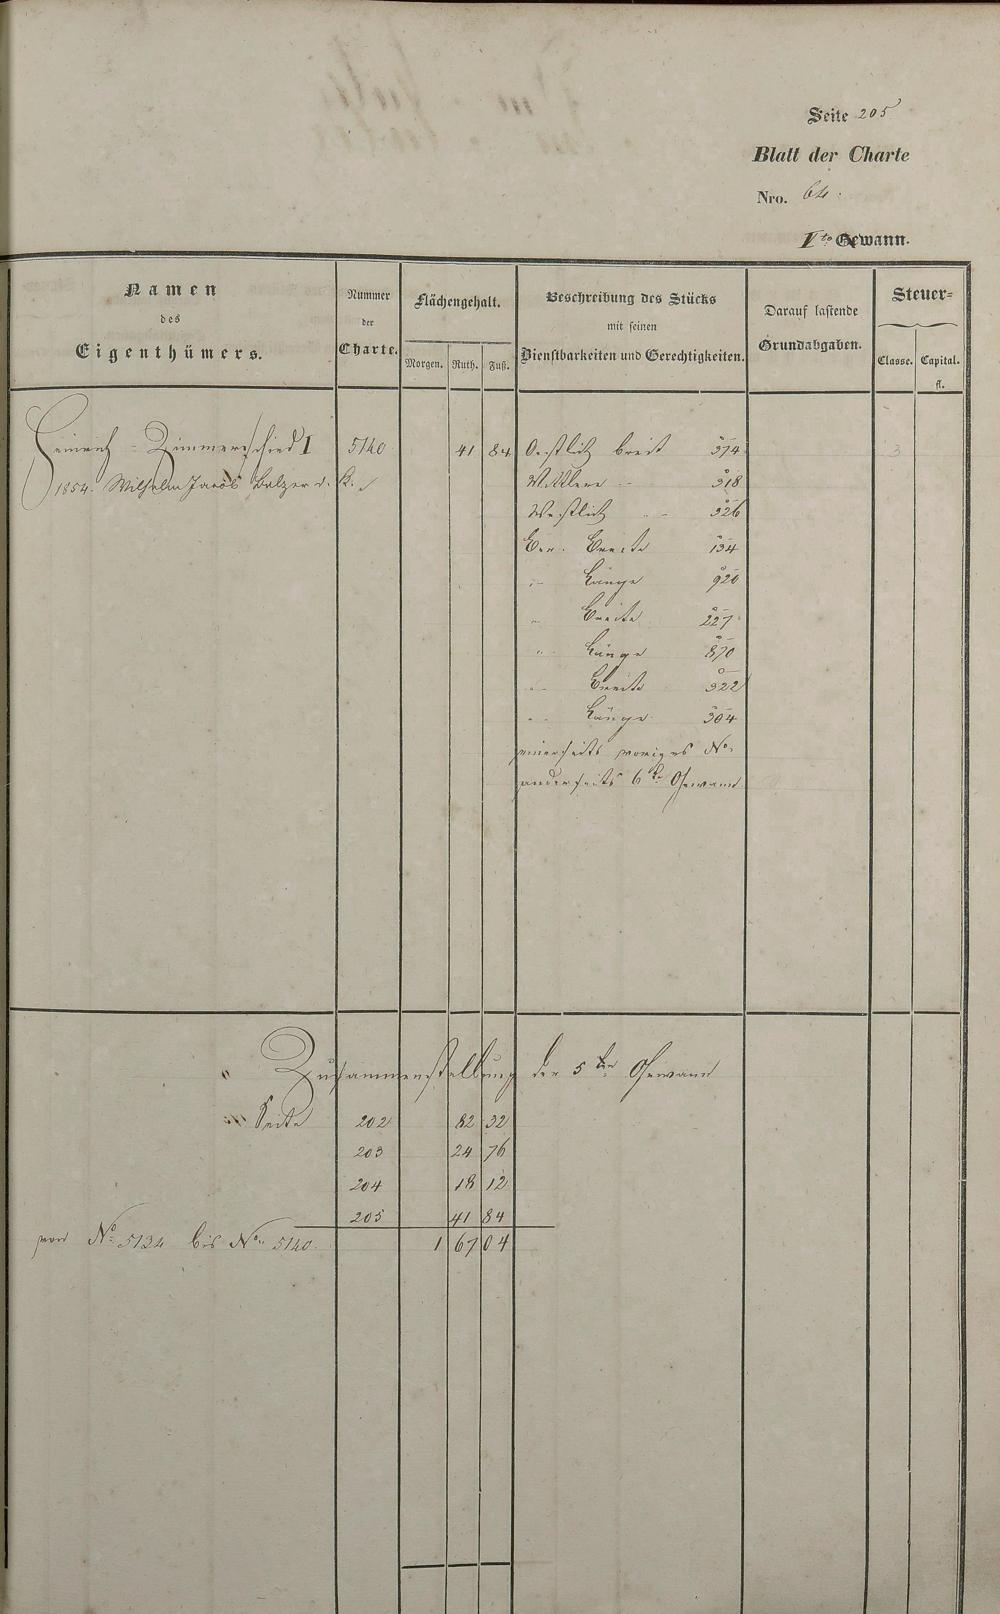 Seite 205
Blatt der Charte
Nro. 64.
V te Gewann.
Namen
des
Eigenthümers.
Nummer
der
Charte.
Flächengehalt.
Morgen. Ruth. Fuß.
Beschreibung des Stücks
mit seinen
Dienstbarkeiten und Gerechtigkeiten.
Darauf lastende
Grundabgaben.
Steuer-
Classe. Capital.
fl.
Heinrich Zimmerschied I 5140 41 84 Oestlich breit 374 3
1854. Wilhelm Jacob Balzer d. K. Mittlere " 318
Westlich " 326
Breite 134
" Länge 920
" Breite 227
" Länge 870
" Breite 322
" Länge 304
einerseits voriges No
anderseits 6te Gewann
Zusammenstellung der 5ten Gewann
Seite 202 82 32
203 24 76
204 18 12
205 41 84
von No 5134 bis No 5140. 1 67 04